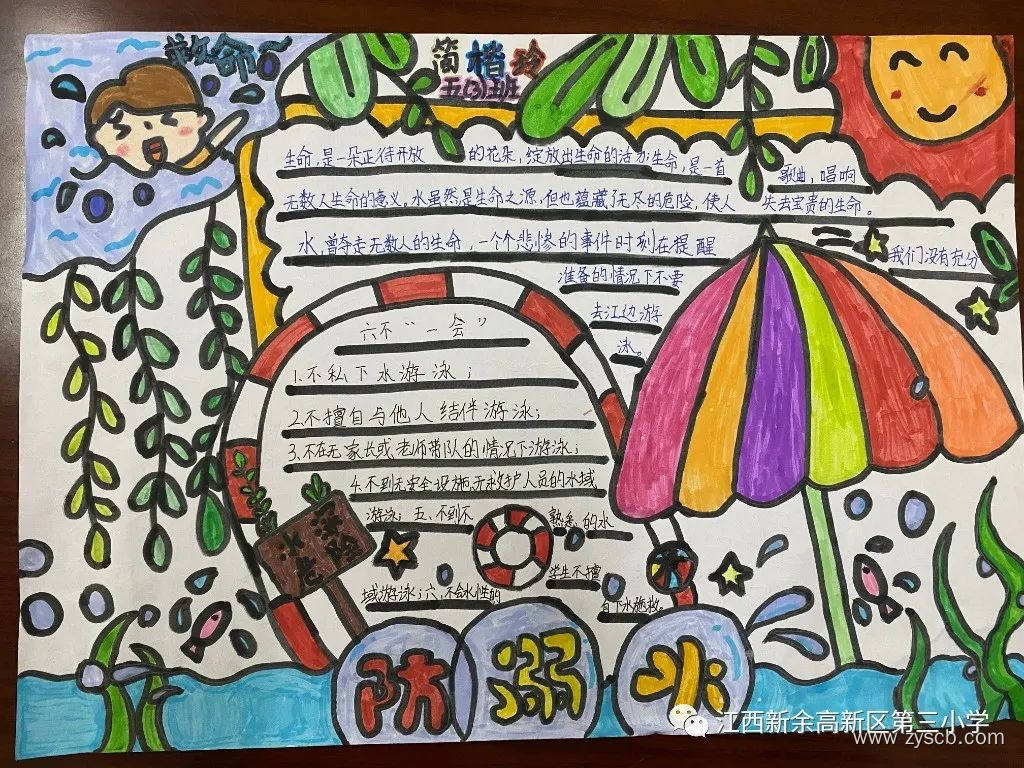 救命
简楷玲
五(3)班
生命,是一朵正待开放 的花朵,绽放出生命的活力;生命,是一首 歌曲,唱响
无数人生命的意义。水虽然是生命之源,但也蕴藏了无尽的危险,使人 失去宝贵的生命。
水,曾夺走无数人的生命,一个个悲惨的事件时刻在提醒 我们没有充分
准备的情况下不要
去江边游
泳。
六不“一会”
1.不私下水游泳;
2.不擅自与他人结伴游泳;
3.不在无家长或老师带队的情况下游泳;
4.不到无安全设施,无救护人员的水域
游泳;五、不到不 熟悉的水
域游泳;六,不会水性的 学生不擅
自下水施救。
水深
危险
防溺水
江西新余高新区第三小学
www.zyscb.com